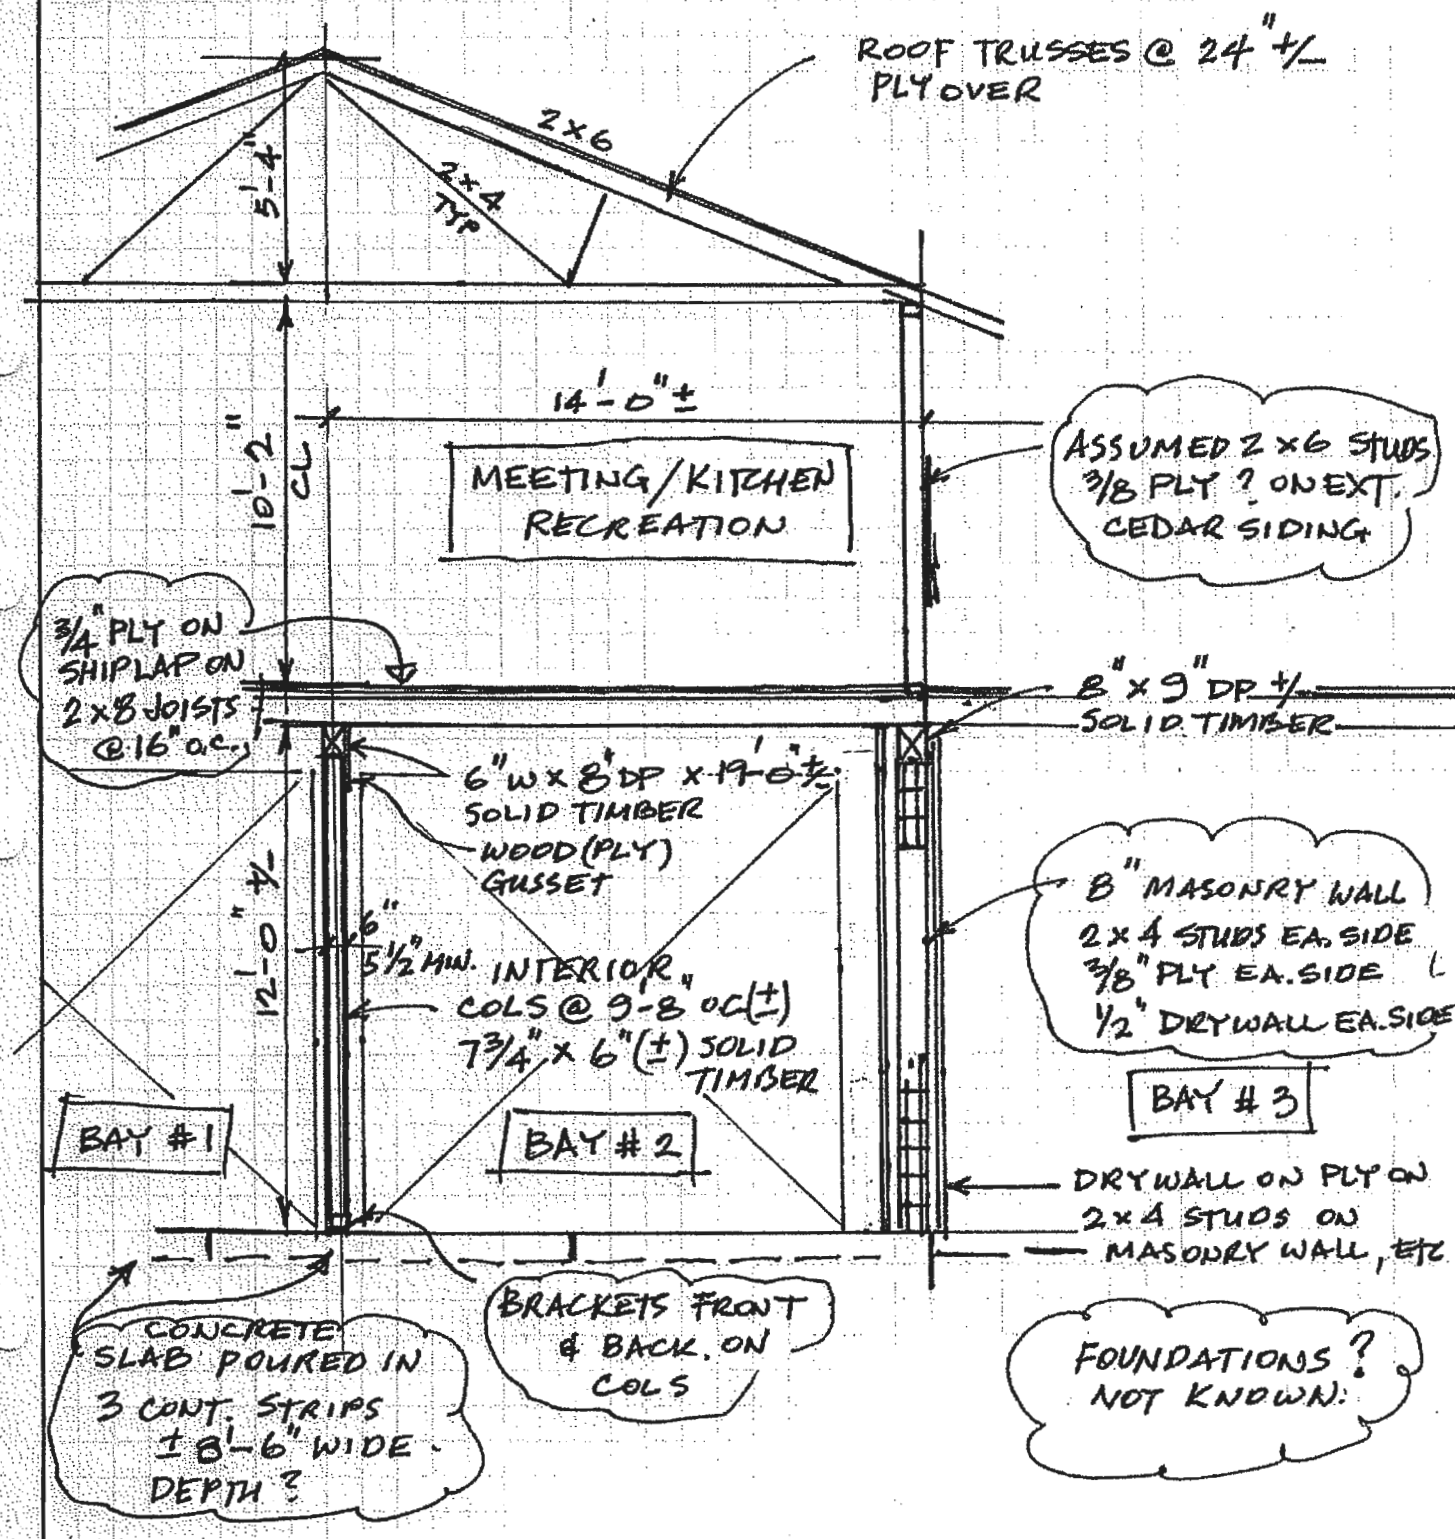 ROOF TRUSSES @ 24" +/-
PLY OVER
2 x 6
5'-4"
2 x 4
TYP
14'-0" ±
10'-2"
CL
MEETING/KITCHEN
RECREATION
ASSUMED 2 x 6 STUDS
3/8 PLY ? ON EXT.
CEDAR SIDING
3/4" PLY ON
SHIPLAP ON
2 x 8 JOISTS
@ 16" O.C.
8" x 9" DP +/-
SOLID TIMBER
6" W x 8" DP x 19'-0" +/-
SOLID TIMBER
WOOD (PLY)
GUSSET
12'-0" +/-
6"
5 1/2" MIN.
INTERIOR
COLS @ 9-8" OC (±)
7 3/4" x 6" (±) SOLID
TIMBER
8" MASONRY WALL
2 x 4 STUDS EA. SIDE
3/8" PLY EA. SIDE
1/2" DRYWALL EA. SIDE
BAY # 1
BAY # 2
BAY # 3
DRYWALL ON PLY ON
2 x 4 STUDS ON
MASONRY WALL, ETC
BRACKETS FRONT
& BACK. ON
COLS
CONCRETE
SLAB POURED IN
3 CONT. STRIPS
± 8'-6" WIDE
DEPTH ?
FOUNDATIONS ?
NOT KNOWN: